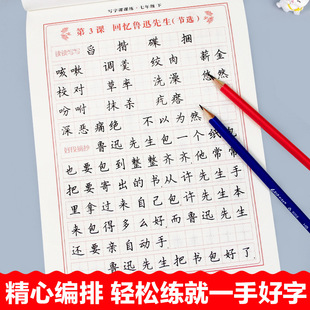 写字课课练·七年级 下
第3课 回忆鲁迅先生(节选)
读读写写
舀 揩 碟 捆
咳嗽 调羹 绞肉 薪金
校对 草率 洗澡 悠然
吩咐 抹杀 疙瘩
深恶痛绝 不以为然
好段摘抄
鲁迅先生包一个纸包
也要包到整整齐齐他常常
把要寄出的书从许先生手
里拿过来自己包许先生本
来包得多么好而鲁迅先生
还要亲自动手
鲁迅先生把书包好了
精心编排 轻松练就一手好字